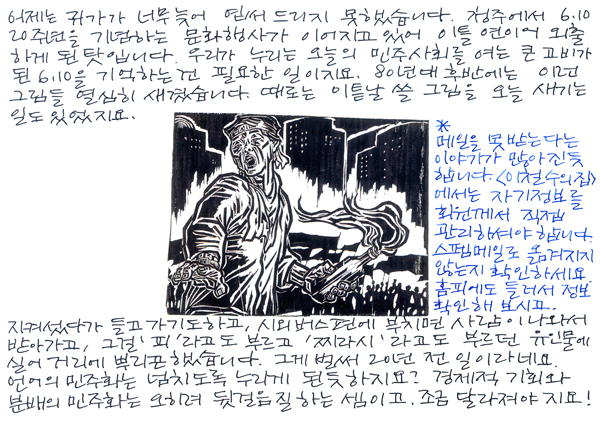 어제는 귀가가 너무 늦어 엽서 드리지 못했습니다. 청주에서 6.10
20주년을 기념하는 문화행사가 이어지고 있어 이틀 연이어 외출
하게 된 탓입니다. 우리가 누리는 오늘의 민주사회를 여는 큰 고비가
된 6.10을 기억하는 건 필요한 일이지요. 80년대 후반에는 이런
그림들 열심히 새겼습니다. 때로는 이튿날 쓸 그림을 오늘 새기는
일도 있었지요.
*
메일을 못 받는다는
이야기가 많아진듯
합니다. <이철수의 집>
에서는 자기정보를
회원께서 직접
관리하셔야 합니다.
스팸메일로 옮겨지지
않는지 확인하세요
홈피에도 들러서 정보
확인해 보시고.
지켜섰다가 들고가기도하고, 시외버스편에 부치면 사람이 나와서
받아가고, 그걸 '피'라고도 부르고 '찌라시'라고도 부르던 유인물에
실어 거리에 뿌리곤 했습니다. 그게 벌써 20년 전 일이라네요.
언어의 민주화는 넘치도록 누리게 된듯 하지요? 경제적 기회와
분배의 민주화는 오히려 뒷걸음질 하는 셈이고. 조금 달라져야 지요!